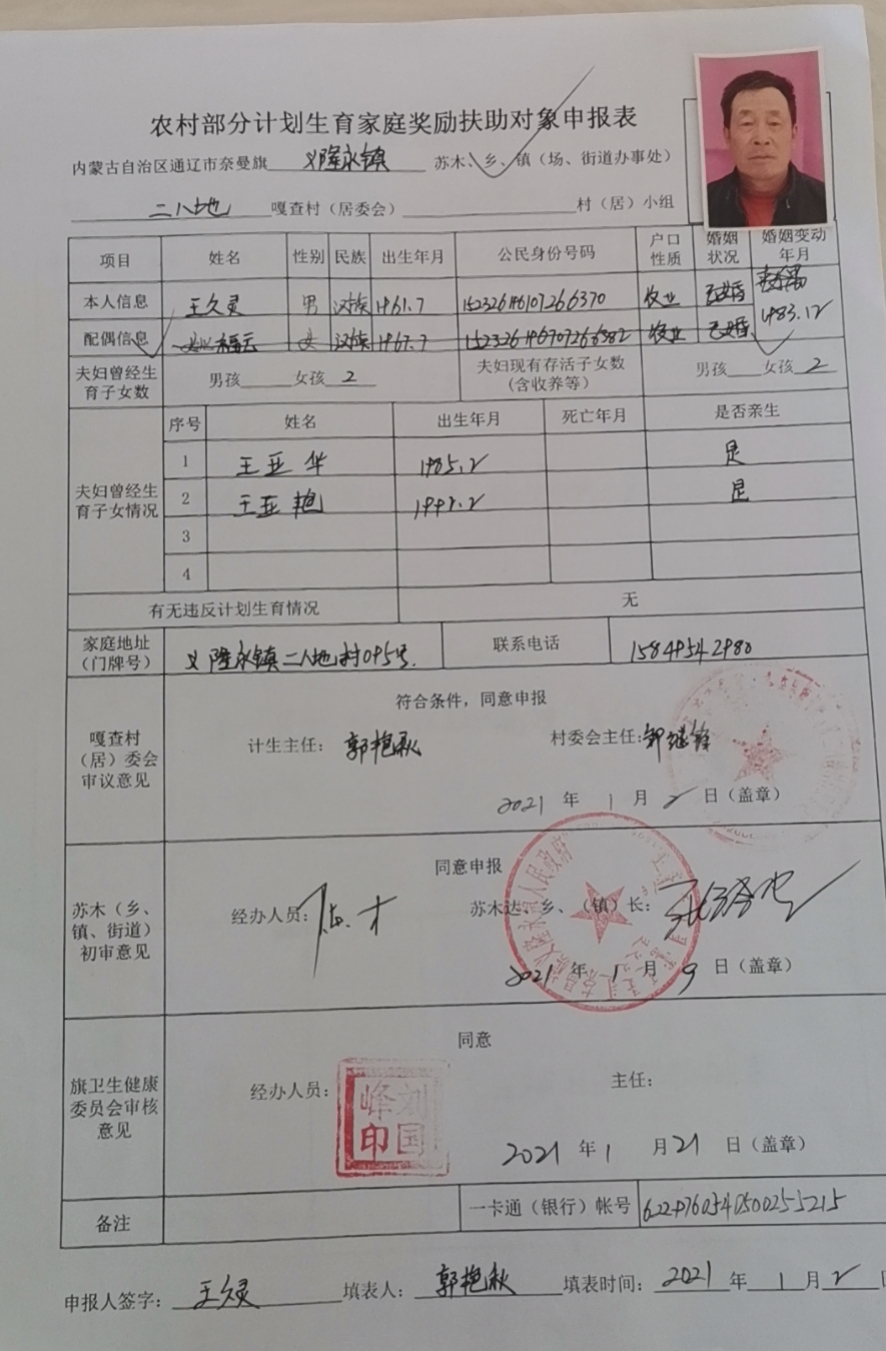 农村部分计划生育家庭奖励扶助对象申报表
内蒙古自治区通辽市奈曼旗 义隆永镇 苏木、乡、镇（场、街道办事处）
二八地 嘎查村（居委会） 村（居）小组
项目 姓名 性别 民族 出生年月 公民身份号码 户口性质 婚姻状况 婚姻变动年月
本人信息 王久灵 男 汉族 1961.7 152326196107266370 农业 已婚
1983.12
配偶信息 女 汉族 1967.7 152326196707266382 农业 已婚
夫妇曾经生育子女数 男孩 女孩 2 夫妇现有存活子女数（含收养等） 男孩 女孩 2
夫妇曾经生育子女情况
序号 姓名 出生年月 死亡年月 是否亲生
1 王亚华 1985.2 是
2 王亚艳 是
3
4
有无违反计划生育情况 无
家庭地址（门牌号） 义隆永镇二八地村095号 联系电话 15849542980
嘎查村（居）委会审议意见
符合条件，同意申报
计生主任： 郭艳秋 村委会主任： 继锋
2021 年 1 月 2 日（盖章）
苏木（乡、镇、街道）初审意见
同意申报
经办人员： 苏木达、乡、（镇）长：
2021 年 1 月 9 日（盖章）
义隆永镇人民政府
旗卫生健康委员会审核意见
同意
经办人员： 主任：
刘国峰印
2021 年 1 月 21 日（盖章）
备注 一卡通（银行）帐号 6224760540500255215
申报人签字： 王久灵 填表人： 郭艳秋 填表时间： 2021 年 1 月 2